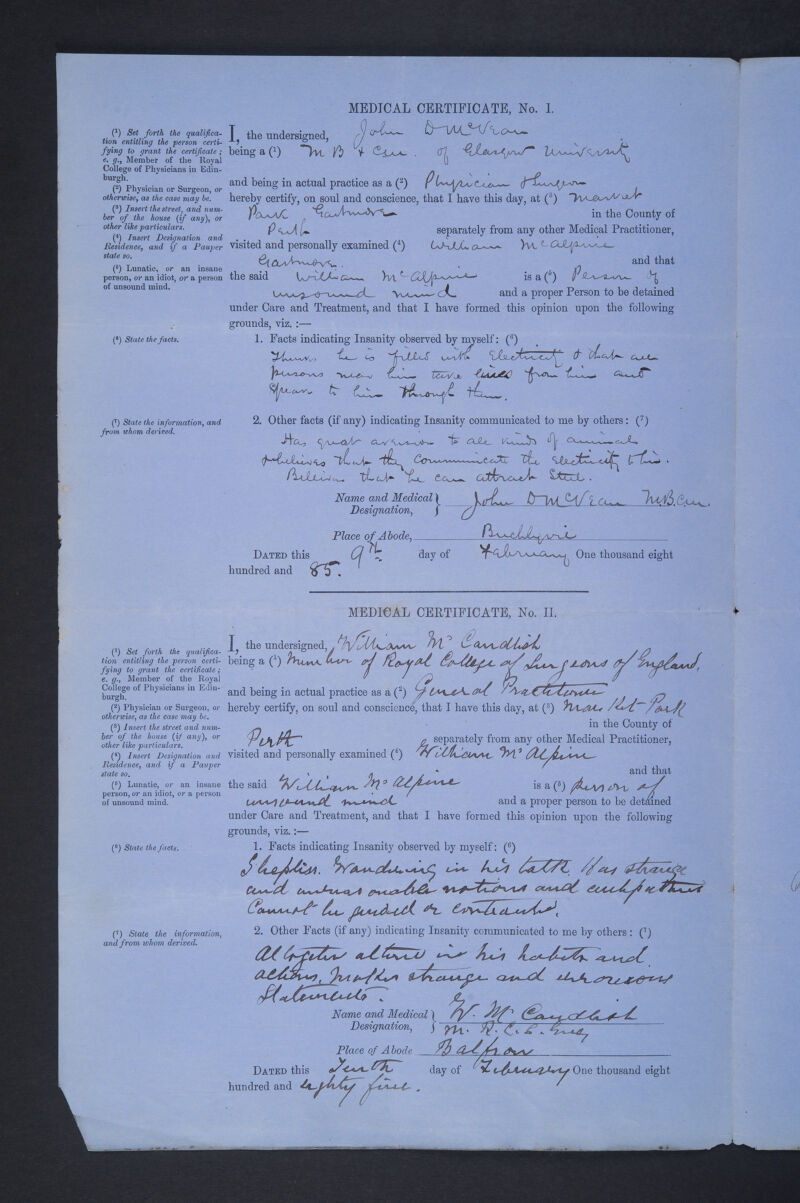 MEDICAL CERTIFICATE, No. I.
(¹) Set forth the qualifica-
tion entitling the person certi-
fying to grant the certificate;
e. g., Member of the Royal
College of Physicians in Edin-
burgh.
(²) Physician or Surgeon, or
otherwise, as the case may be.
(³) Insert the street, and num-
ber of the house (if any), or
other like particulars.
(⁴) Insert Designation and
Residence, and if a Pauper
state so.
(⁵) Lunatic, or an insane
person, or an idiot, or a person
of unsound mind.
I, the undersigned, John D McVean
being a (¹) M B & Cm. of Glasgow University
and being in actual practice as a (²) Physician & Surgeon
hereby certify, on soul and conscience, that I have this day, at (³) Market
Park Gartmore in the County of
Perth separately from any other Medical Practitioner,
visited and personally examined (⁴) William McAlpine
Gartmore. and that
the said William McAlpine is a (⁵) Person of
unsound mind and a proper Person to be detained
under Care and Treatment, and that I have formed this opinion upon the following
grounds, viz. :—
(⁶) State the facts.
1. Facts indicating Insanity observed by myself: (⁶)
Thinks he is filled with Electricity & that all
persons near him take lines from him and
speak to him through them.
(⁷) State the information, and
from whom derived.
2. Other facts (if any) indicating Insanity communicated to me by others: (⁷)
Has great aversion to all kinds of animals
& believes that they communicate the electricity to him.
Believes that he can attract Steel.
Name and Medical Designation, John D McVean M.B. Cm.
Place of Abode, Buchlyvie
DATED this 9th day of February One thousand eight
hundred and 85.
MEDICAL CERTIFICATE, No. II.
(¹) Set forth the qualifica-
tion entitling the person certi-
fying to grant the certificate;
e. g., Member of the Royal
College of Physicians in Edin-
burgh.
(²) Physician or Surgeon, or
otherwise, as the case may be.
(³) Insert the street and num-
ber of the house (if any), or
other like particulars.
(⁴) Insert Designation and
Residence, and if a Pauper
state so.
(⁵) Lunatic, or an insane
person, or an idiot, or a person
of unsound mind.
I, the undersigned, William McCandlish
being a (¹) Member of Royal College of Surgeons of England,
and being in actual practice as a (²) General Practitioner
hereby certify, on soul and conscience, that I have this day, at (³) Market Park
in the County of
Perth separately from any other Medical Practitioner,
visited and personally examined (⁴) William McAlpine
and that
the said William McAlpine is a (⁵) person of
unsound mind and a proper person to be detained
under Care and Treatment, and that I have formed this opinion upon the following
grounds, viz. :—
(⁶) State the facts.
1. Facts indicating Insanity observed by myself: (⁶)
Sleepless. Wandering in his talk. Has strange
and unreasonable notions and antipathies
Cannot be guided or
(⁷) State the information,
and from whom derived.
2. Other Facts (if any) indicating Insanity communicated to me by others: (⁷)
Altogether altered in his habits and
actions. Makes strange and erroneous
Statements.
Name and Medical Designation, W. McCandlish
M. R. C. S. Eng
Place of Abode Balfron
DATED this Tenth day of February One thousand eight
hundred and eighty five.